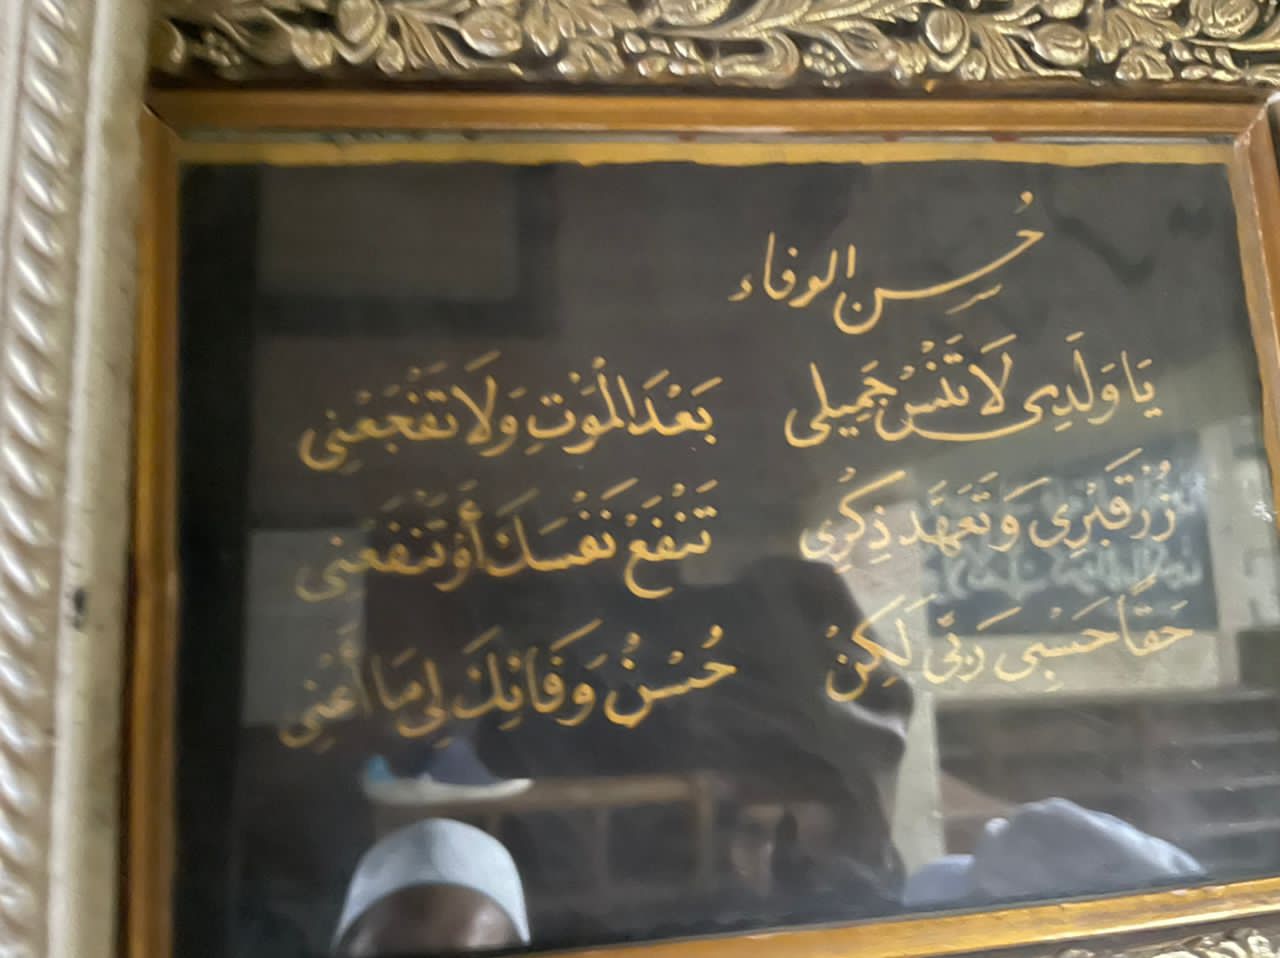 حُسِن الوفاء
يَا وَلَدِى لَا تَنْسَ جَمِيلِى بَعْدَ الْمَوْتِ وَلَا تَفْجَعْنِى
زُرْ قَبْرِى وَتَعَهَّدْ ذِكْرِى تَنْفَعْ نَفْسَكَ أَوْ تَنْفَعْنِى
حَقًّا حَسْبِى رَبِّى لَكِنْ حُسْنُ وَفَائِكَ لِى مَا أَعْنِى